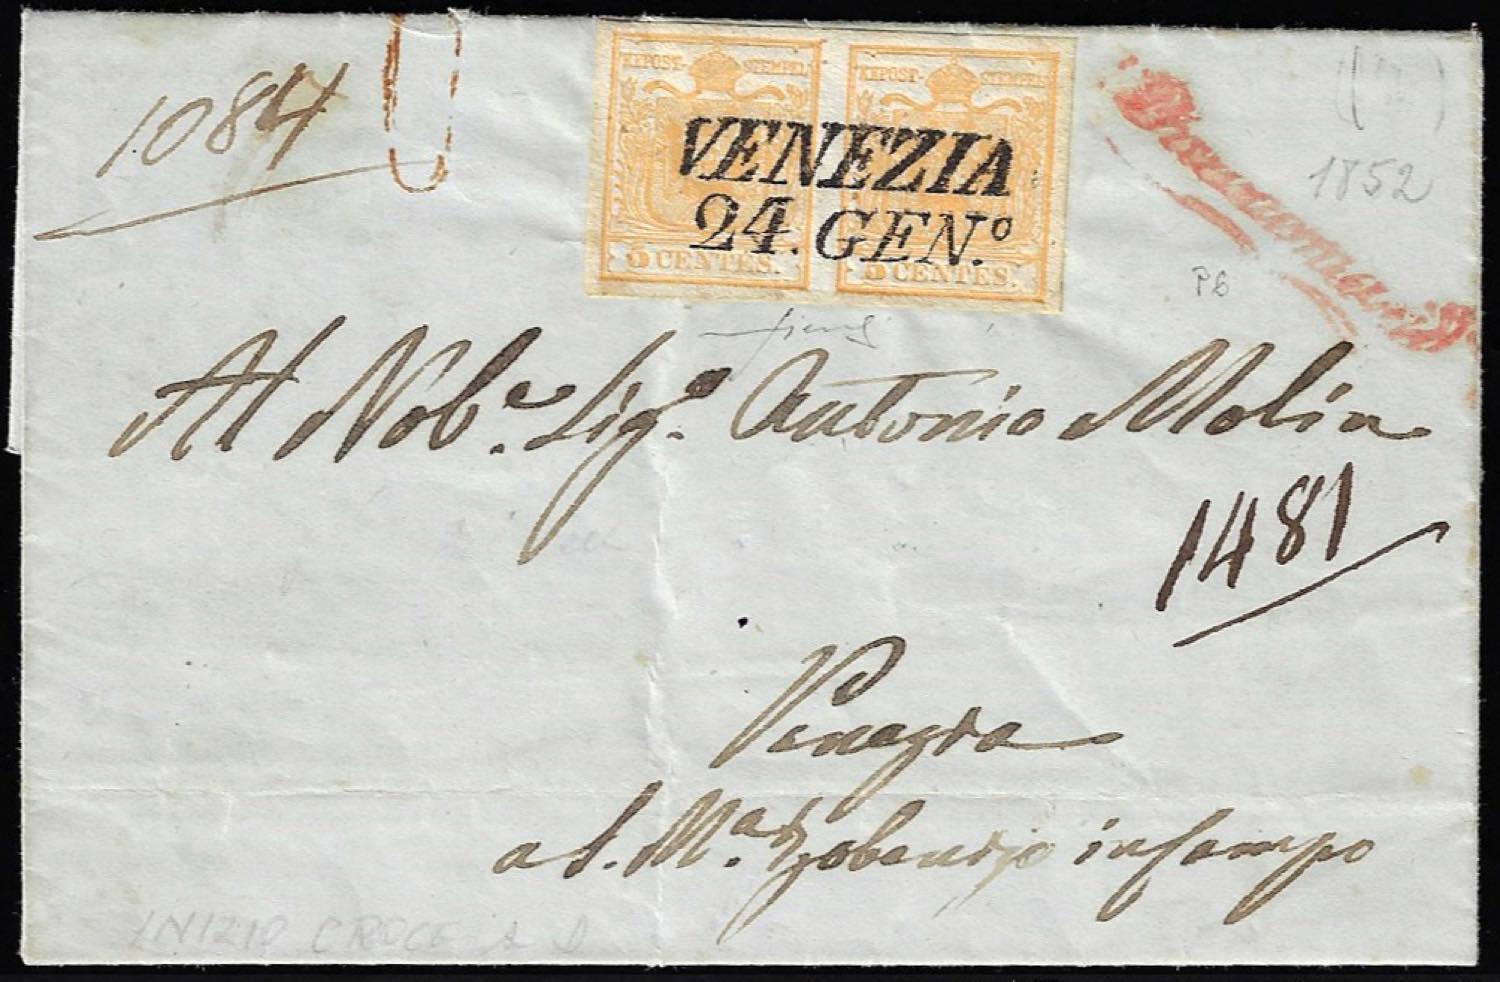 1084
KKPOST-STEMPEL KKPOST-STEMPEL
VENEZIA
24. GEN.º
5 CENTES. 5 CENTES.
Raccomandata
1852
P6
Al Nob.e Sig.o Antonio Molin
1481
Venezia
a S. M.a Zobenigo in Campo
INIZIO CROCE A D